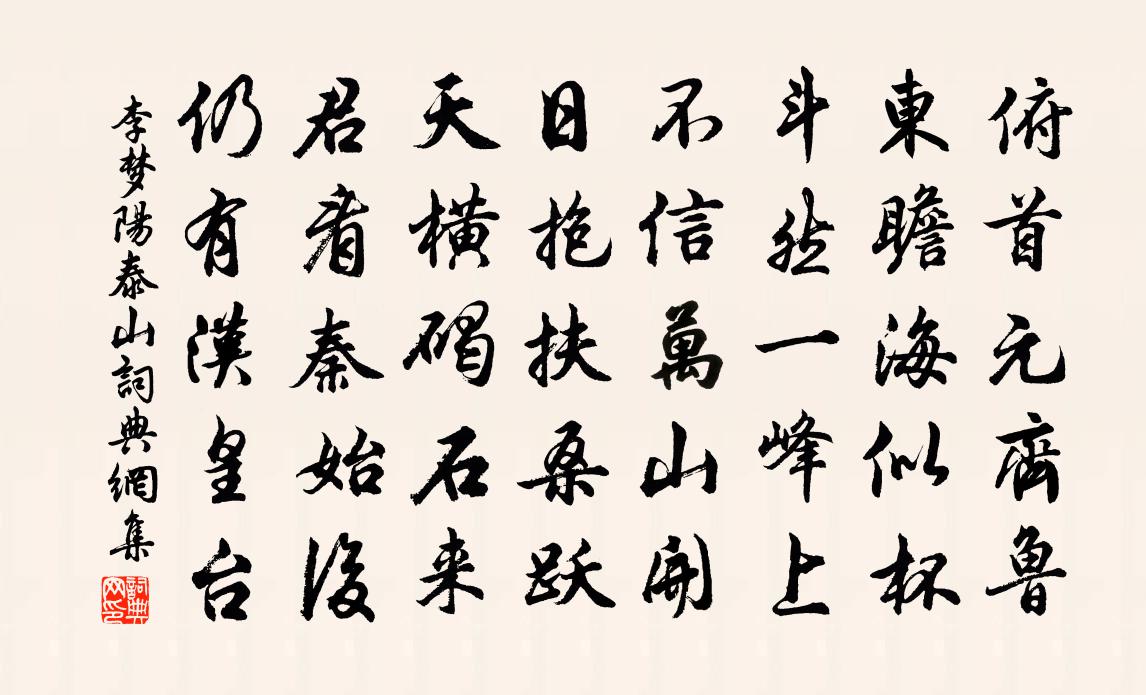 俯首元齊魯
東瞻海似杯
斗然一峰上
不信萬山開
日抱扶桑跃
天橫碣石来
君看秦始後
仍有漢皇台
李梦陽泰山詞典網集
詞典网印